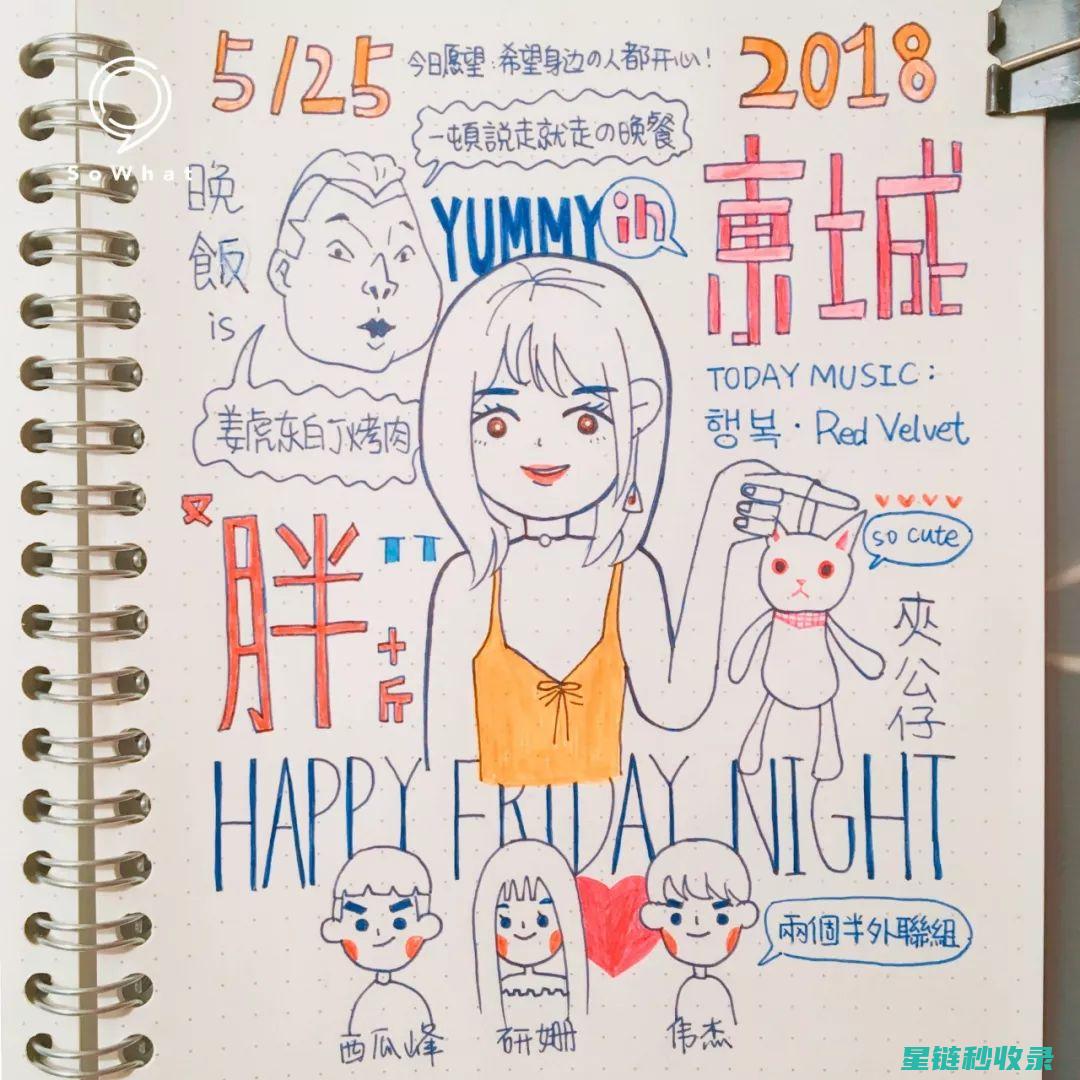 5/25
今日愿望:希望身边の人都开心!
2018
SoWhat
一顿説走就走の晚餐
晚飯
is
YUMMY
in
東城
姜虎东白丁烤肉
TODAY MUSIC:
행복·Red Velvet
又
胖
十斤
so cute
夾公仔
HAPPY FRIDAY NIGHT
兩個半外聯組
西瓜峰
研姗
伟杰
星链秒收录